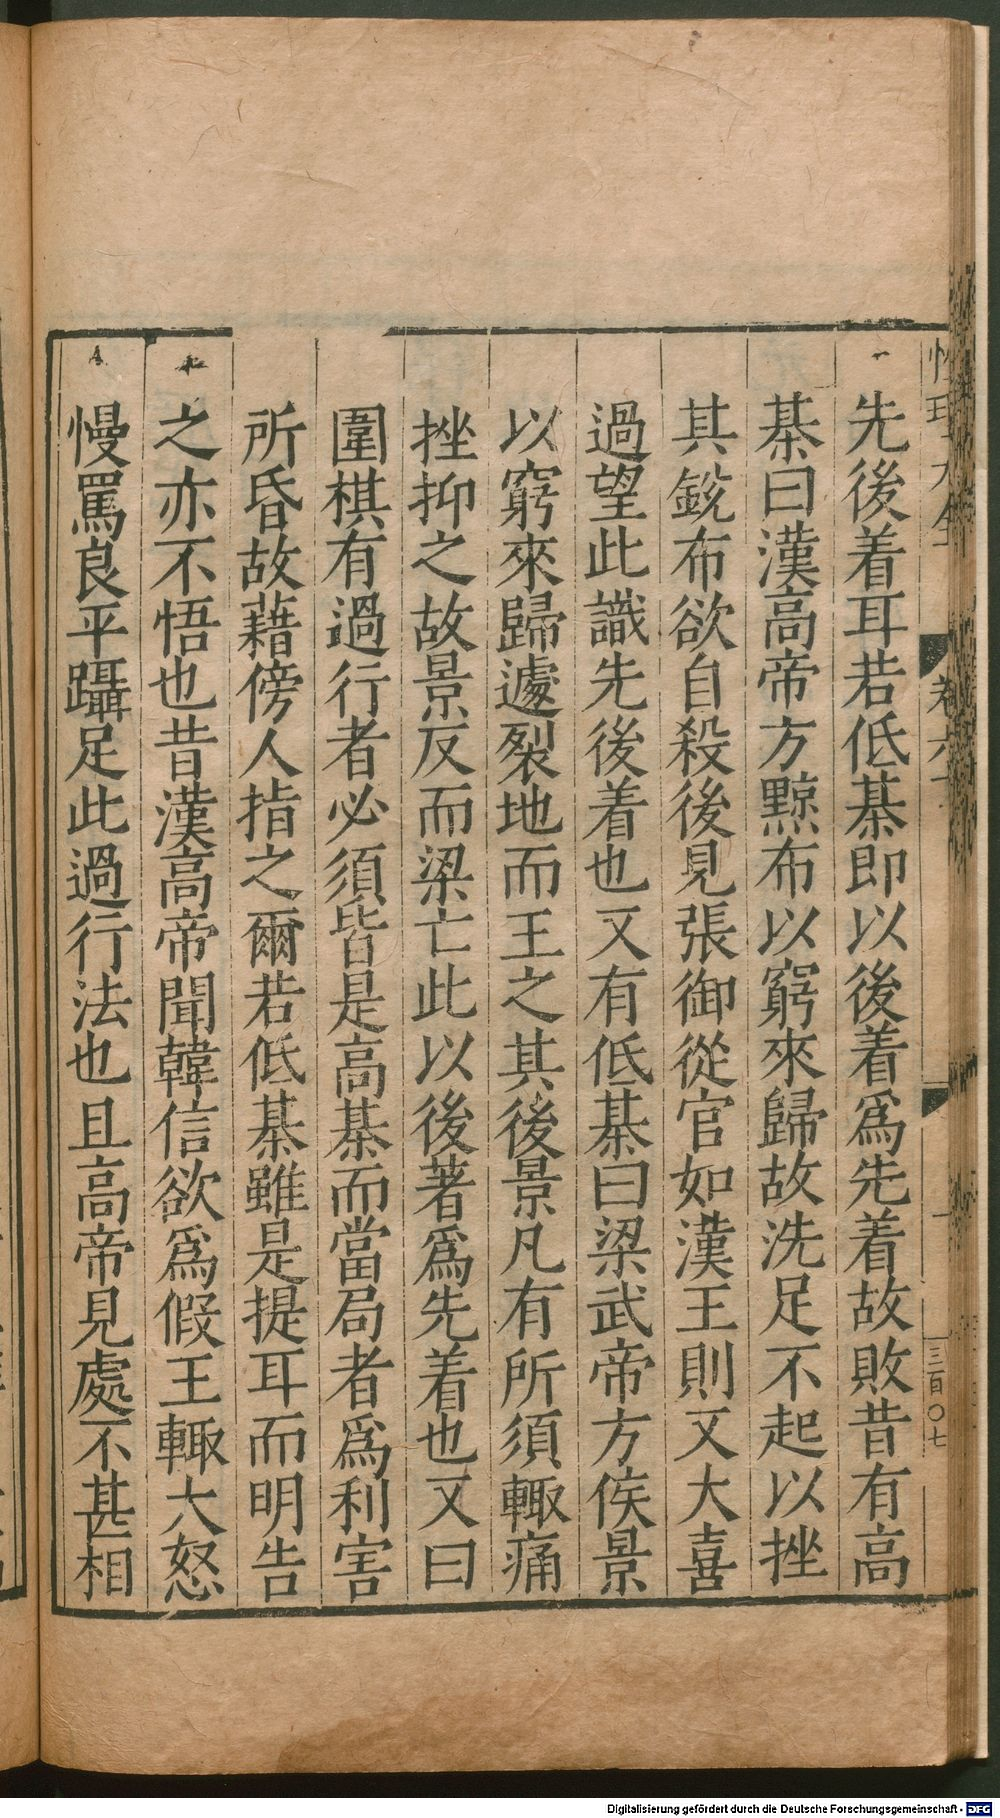 先後着耳若低棊即以後着爲先着故敗昔有高
棊曰漢高帝方黥布以窮來歸故洗足不起以挫
其銳布欲自殺後見張御從官如漢王則又大喜
過望此識先後着也又有低棊曰梁武帝方侯景
以窮來歸遽裂地而王之其後景凡有所須輙痛
挫抑之故景反而梁亡此以後著爲先着也又曰
圍棋有過行者必須皆是高棊而當局者爲利害
所昏故藉傍人指之爾若低棊雖是提耳而明告
之亦不悟也昔漢高帝聞韓信欲爲假王輙大怒
慢罵良平躡足此過行法也且高帝見處不甚相
三百〇七
Digitalisierung gefördert durch die Deutsche Forschungsgemeinschaft - DFG